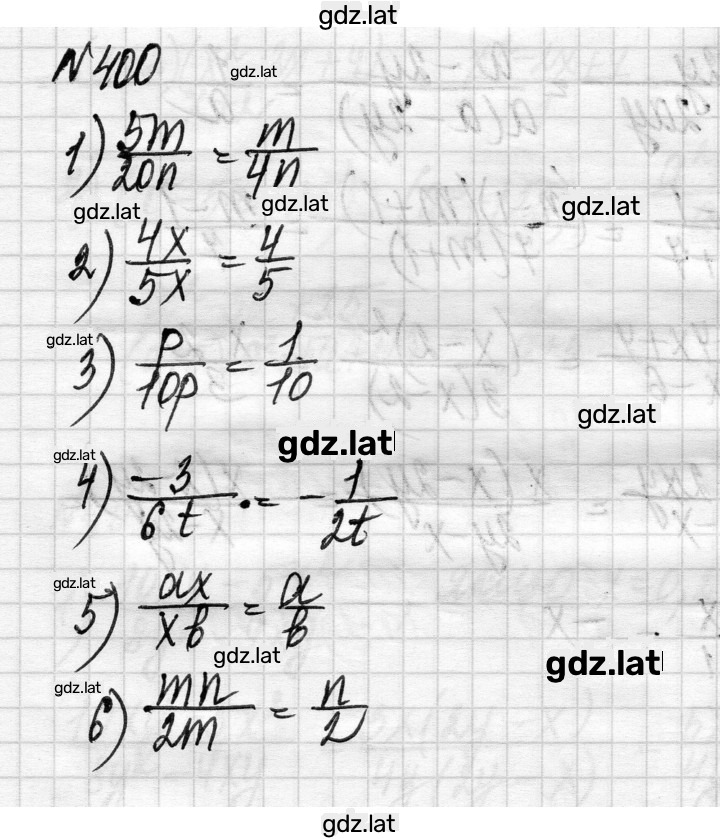 gdz.lat
№ 400 gdz.lat
1) 5m/20n = m/4n
gdz.lat gdz.lat gdz.lat
2) 4x/5x = 4/5
gdz.lat
3) p/10p = 1/10
gdz.lat
gdz.lat
gdz.lat
4) -3/6t = - 1/2t
gdz.lat
5) ax/xb = a/b
gdz.lat gdz.lat
gdz.lat
6) mn/2m = n/2
gdz.lat